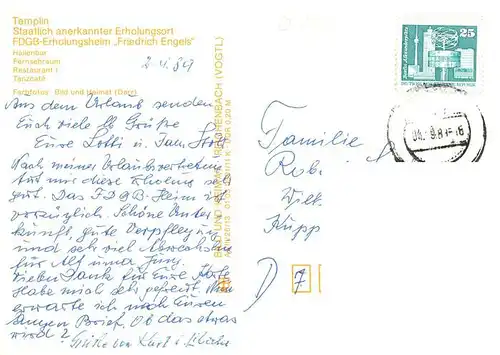 Templin
Staatlich anerkannter Erholungsort
FDGB-Erholungsheim „Friedrich Engels"
Hallenbar
Fernsehraum
Restaurant I
Tanzcafé
Farbfotos: Bild und Heimat (Darr)
Aus dem Urlaub senden
Euch viele Grüße
Eure Lotti u.
Nach meiner Urlaubsvertretung
tut mir diese Erholung sehr
gut. Das FDGB-Heim ist
vorzüglich. Schöne Unter-
kunft, gute Verpflegung
und sehr viel Abwechslung
für Alt und Jung.
Vielen Dank für Eure Karte
Habe mich sehr gefreut. Nun
erwarte ich noch Euren
langen Brief. Ob das etwas
wird?
Grüße von Kurt
BILD UND HEIMAT REICHENBACH (VOGTL)
25
Familie
Rob.
Wilh.
Kupp
D 7